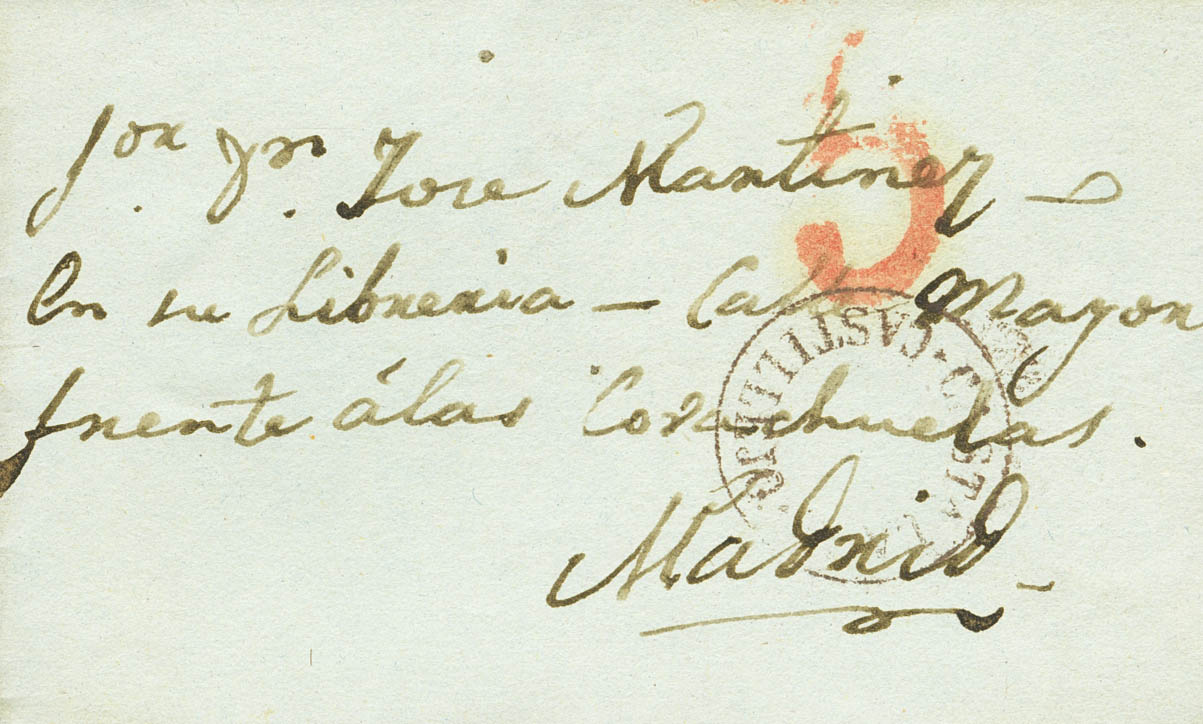 Sor Dn Jose Martinez
En su Libreria - Calle Mayor
frente á las Covachuelas.
Madrid
5